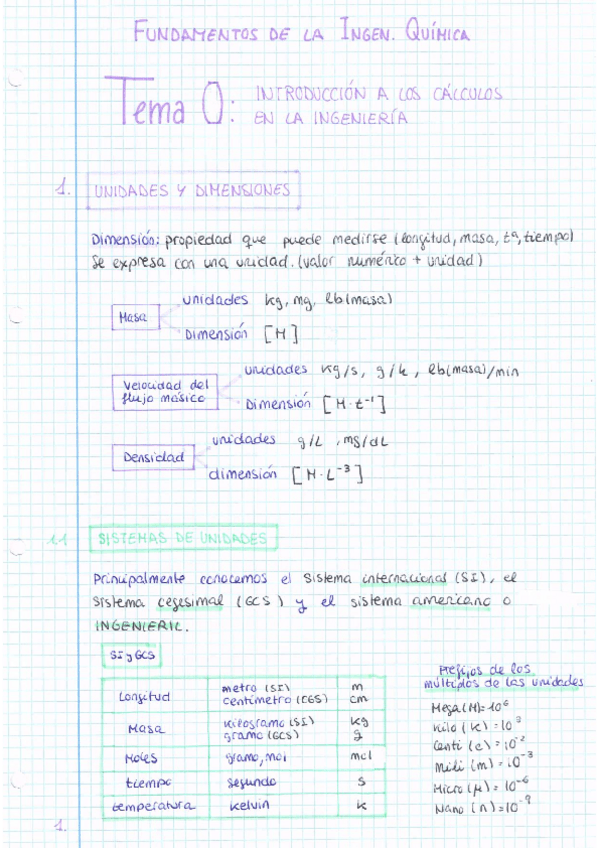 FUNDAMENTOS DE LA INGEN. QUÍMICA
Tema 0: INTRODUCCIÓN A LOS CÁLCULOS
EN LA INGENIERÍA
1. UNIDADES Y DIMENSIONES
Dimensión: propiedad que puede medirse (longitud, masa, tª, tiempo)
Se expresa con una unidad. (valor numérico + unidad)
Masa
unidades kg, mg, lb(masa)
Dimensión [M]
Velocidad del
flujo másico
unidades kg/s, g/h, lb(masa)/min
Dimensión [M·t⁻¹]
Densidad
unidades g/L, mg/dL
dimensión [M·L⁻³]
1.1 SISTEMAS DE UNIDADES
Principalmente conocemos el sistema internacional (SI), el
sistema cegesimal (GCS) y el sistema americano o
INGENIERIL.
SI y GCS
Longitud metro (SI) m
centímetro (CGS) cm
Masa kilogramo (SI) kg
gramo (GCS) g
Moles gramo, mol mol
tiempo segundo s
temperatura kelvin k
Prefijos de los
múltiplos de las unidades
Mega (M) = 10⁶
Kilo (k) = 10³
Centi (c) = 10⁻²
Mili (m) = 10⁻³
Micro (μ) = 10⁻⁶
Nano (n) = 10⁻⁹
1.